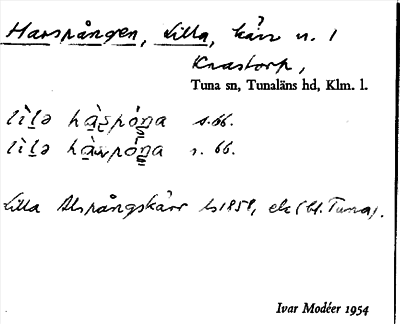 Harspången, Lilla, kärr n. 1
Knastorp,
Tuna sn, Tunaläns hd, Klm. l.
lìl̠ə hà̠ʂpóŋ̠a s. 66.
lìl̠ə hà̠rspóŋ̠a r. 66.
Lilla Alspångskärr ls 1858, ek (bl. Tuna).
Ivar Modéer 1954